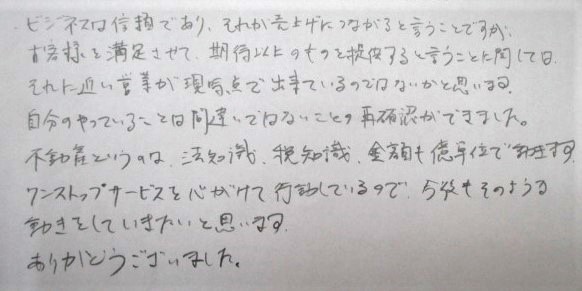 ビジネスは信頼であり、それが売上げにつながると言うことですが、
お客様を満足させて、期待以上のものを提供すると言うことに関しては、
それに近い営業が現時点で出来ているのではないかと思います。
自分のやっていることは間違いではないことの再確認ができました。
不動産というのは、法知識、税知識、金額も億単位で動きます。
ワンストップサービスを心がけて行動しているので、今後もそのような
動きをしていきたいと思います。
ありがとうございました。